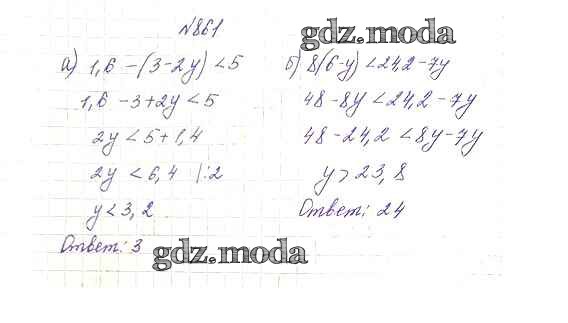 №861
gdz.moda
а) 1,6 - (3-2y) < 5
1,6 - 3 + 2y < 5
2y < 5 + 1,4
2y < 6,4 |:2
y < 3,2
Ответ: 3
б) 8(6-y) < 24,2 - 7y
48 - 8y < 24,2 - 7y
48 - 24,2 < 8y - 7y
y > 23,8
Ответ: 24
gdz.moda